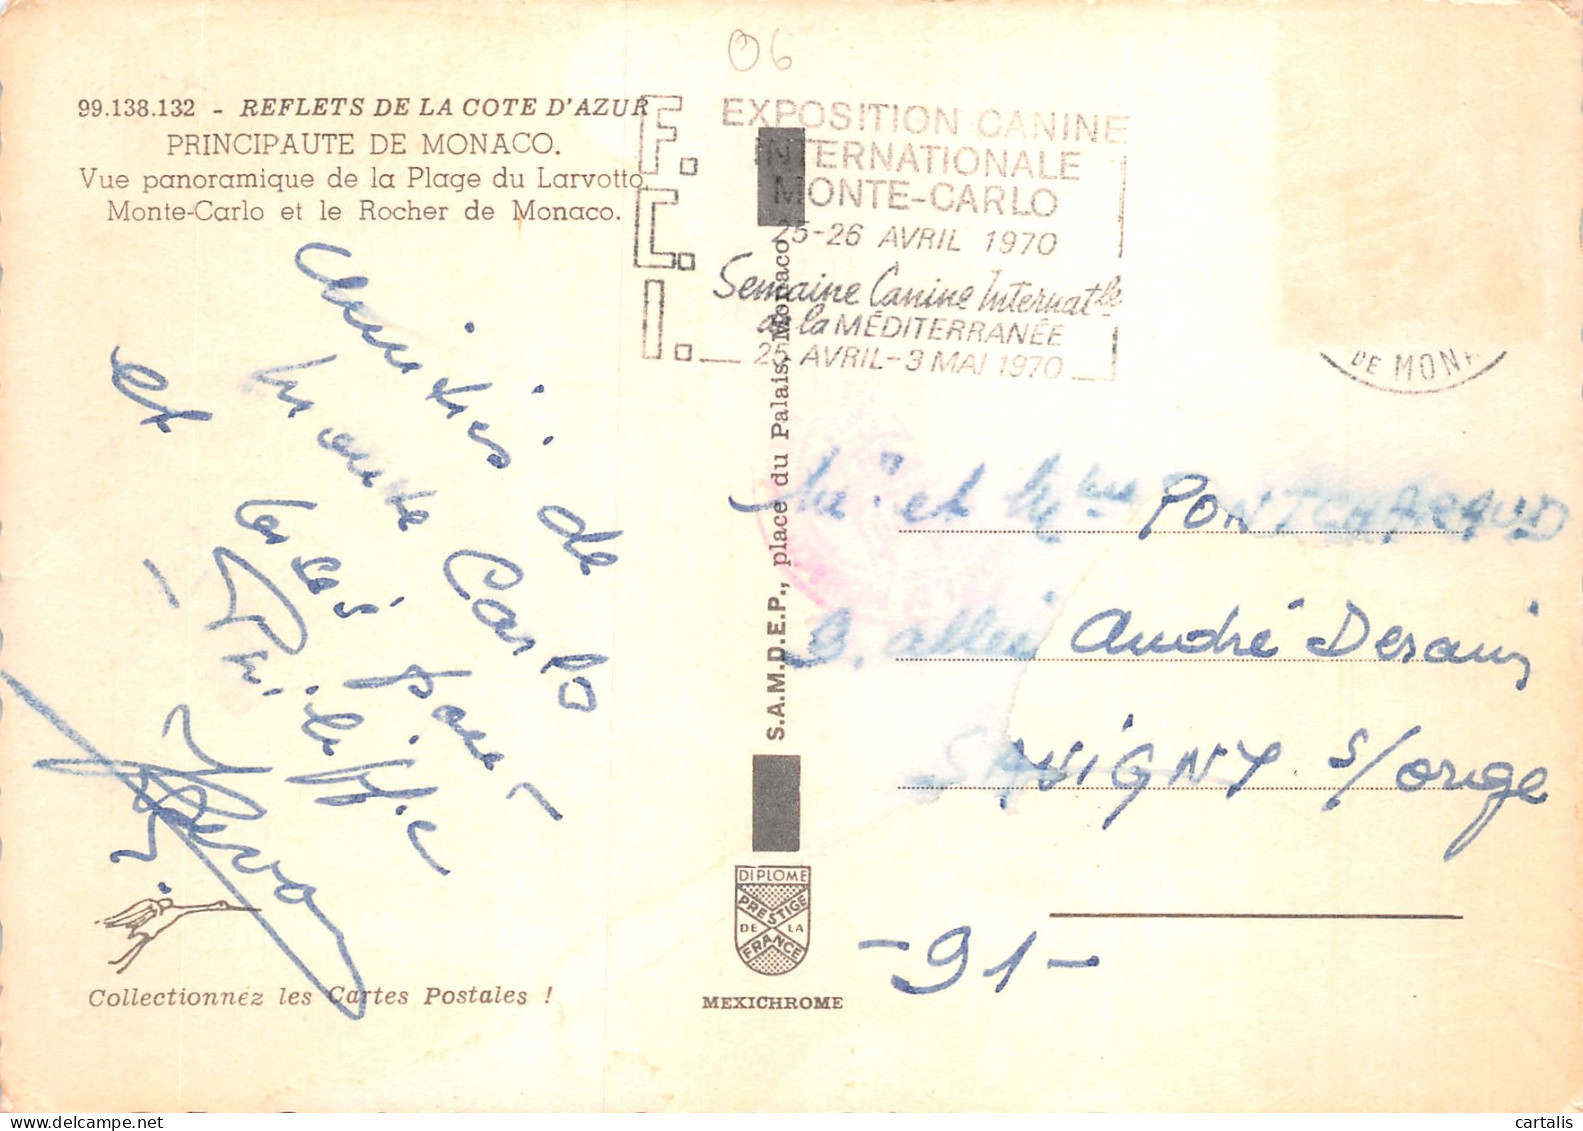 06
99.138.132 - REFLETS DE LA COTE D'AZUR
PRINCIPAUTE DE MONACO.
Vue panoramique de la Plage du Larvotto,
Monte-Carlo et le Rocher de Monaco.
F.C.I.
EXPOSITION CANINE
INTERNATIONALE
MONTE-CARLO
25-26 AVRIL 1970
Semaine Canine Internatle
de la MÉDITERRANÉE
25 AVRIL-3 MAI 1970
DE MON
Amitiés de
Monte Carlo
et
- Philippe
S.A.M.D.E.P., place du Palais, Monaco
Mr et Mme PONTCHARAUD
3. allée André Derain
SAVIGNY s/orge
-91-
DIPLOME
PRESTIGE
DE LA
FRANCE
MEXICHROME
Collectionnez les Cartes Postales !
cartalis